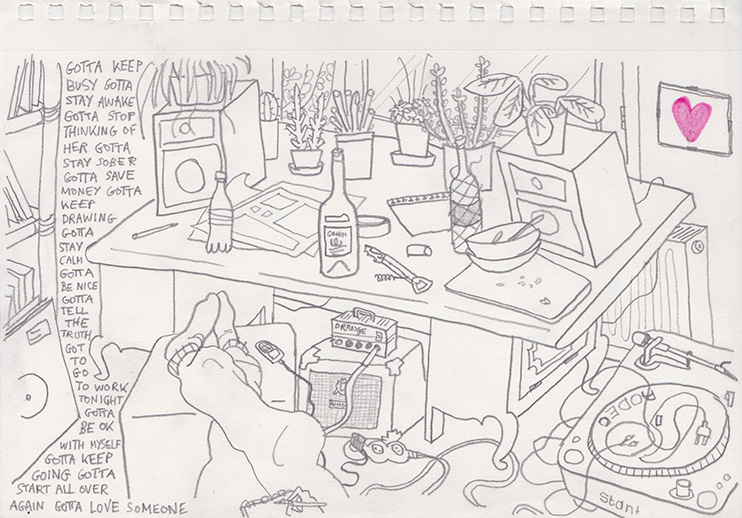 GOTTA KEEP
BUSY GOTTA
STAY AWAKE
GOTTA STOP
THINKING OF
HER GOTTA
STAY SOBER
GOTTA SAVE
MONEY GOTTA
KEEP
DRAWING
GOTTA
STAY
CALM
GOTTA
BE NICE
GOTTA
TELL
THE
TRUTH
GOT
TO
GO
TO WORK
TONIGHT
GOTTA
BE OK
WITH MYSELF
GOTTA KEEP
GOING GOTTA
START ALL OVER
AGAIN GOTTA LOVE SOMEONE
ORANGE